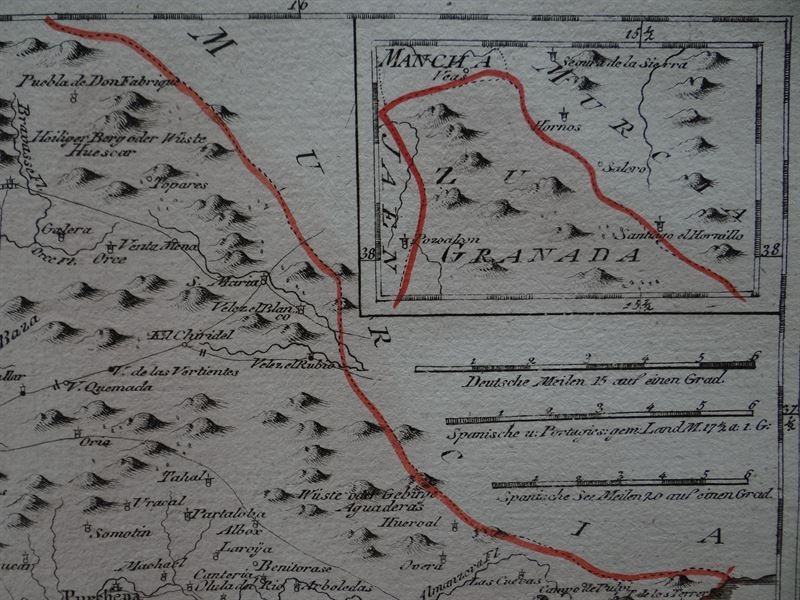 16
M
U
R
C
I
A
Puebla de Don Fabrique
Heiliger Berg oder Wüste
Huescar
Topares
Galera
Venta Mena
Orce rt.
Orce
S. Maria
Velez el Blan
co
El Chiridel
Velez el Rubio
V. de las Vertientes
V. Quemada
Baza
Oria
Tahal
Wüste oder Gebirge
Aguaderas
Vracal
Partaloba
Somotin
Albox
Hueroal
Laroja
Machael
Benitorase
Overa
Canteria
Olula del Rio
Arboledas
Purchena
Almanzora Fl.
Las Cuevas
Campo de Pulpi
T. de los Terreros
15½
MANCHA
Veas
Segura de la Sierra
MURCIA
Hornos
JAEN
ZU
Salero
Pozoalcon
Santiago el Hornillo
GRANADA
38
38
15½
1 2 3 4 5 6
Deutsche Meilen 15 auf einen Grad.
1 2 3 4 5 6
Spanische u: Portugies: gem: Land M. 17½ a: 1. G:
37
½
1 2 3 4 5 6
Spanische See Meilen 20 auf einen Grad.